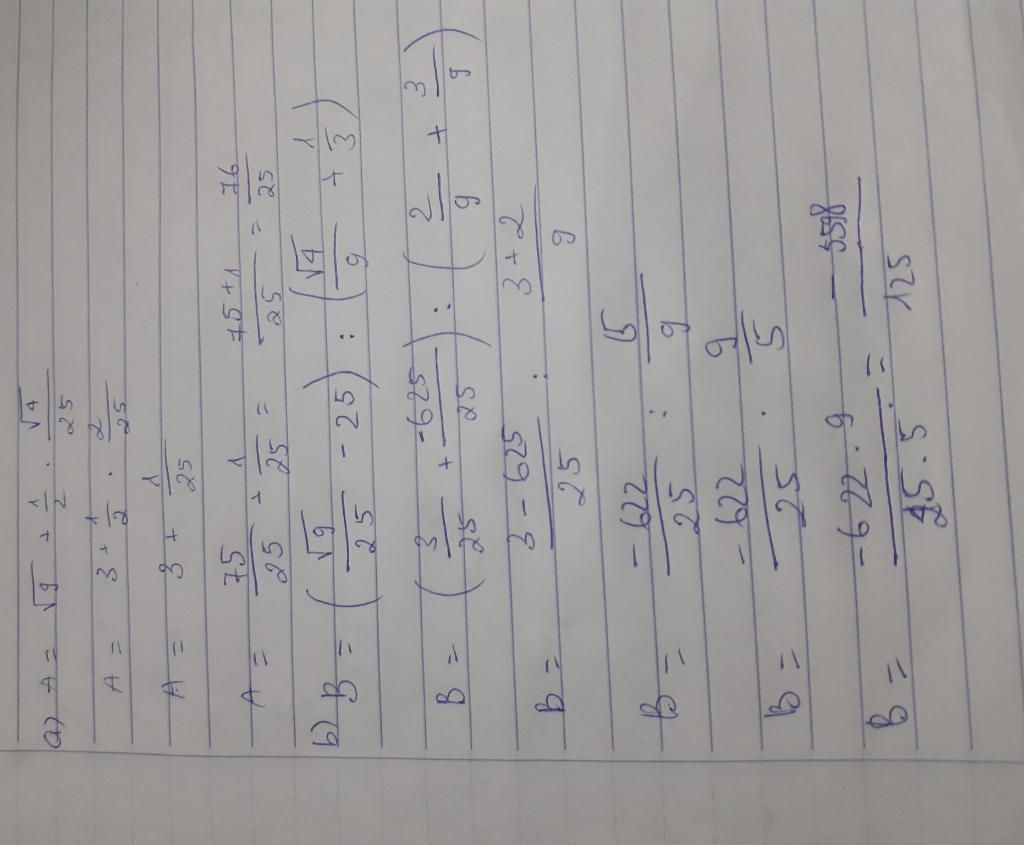 a) A = √9 + 1/2 . √4/25
A = 3 + 1/2 . 2/25
A = 3 + 1/25
A = 75/25 + 1/25 = 75+1/25 = 76/25
b) B = (√9/25 - 25) : (√4/9 + 1/3)
B = (3/25 + -625/25) : (2/9 + 3/9)
B = 3 - 625/25 : 3+2/9
B = -622/25 : 5/9
B = -622/25 . 9/5
B = -622 . 9/25 . 5 = -5598/125